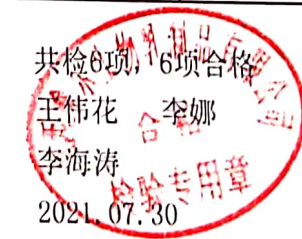 共检6项，6项合格
王伟花 李娜
李海涛
2021.07.30
合格
检验专用章